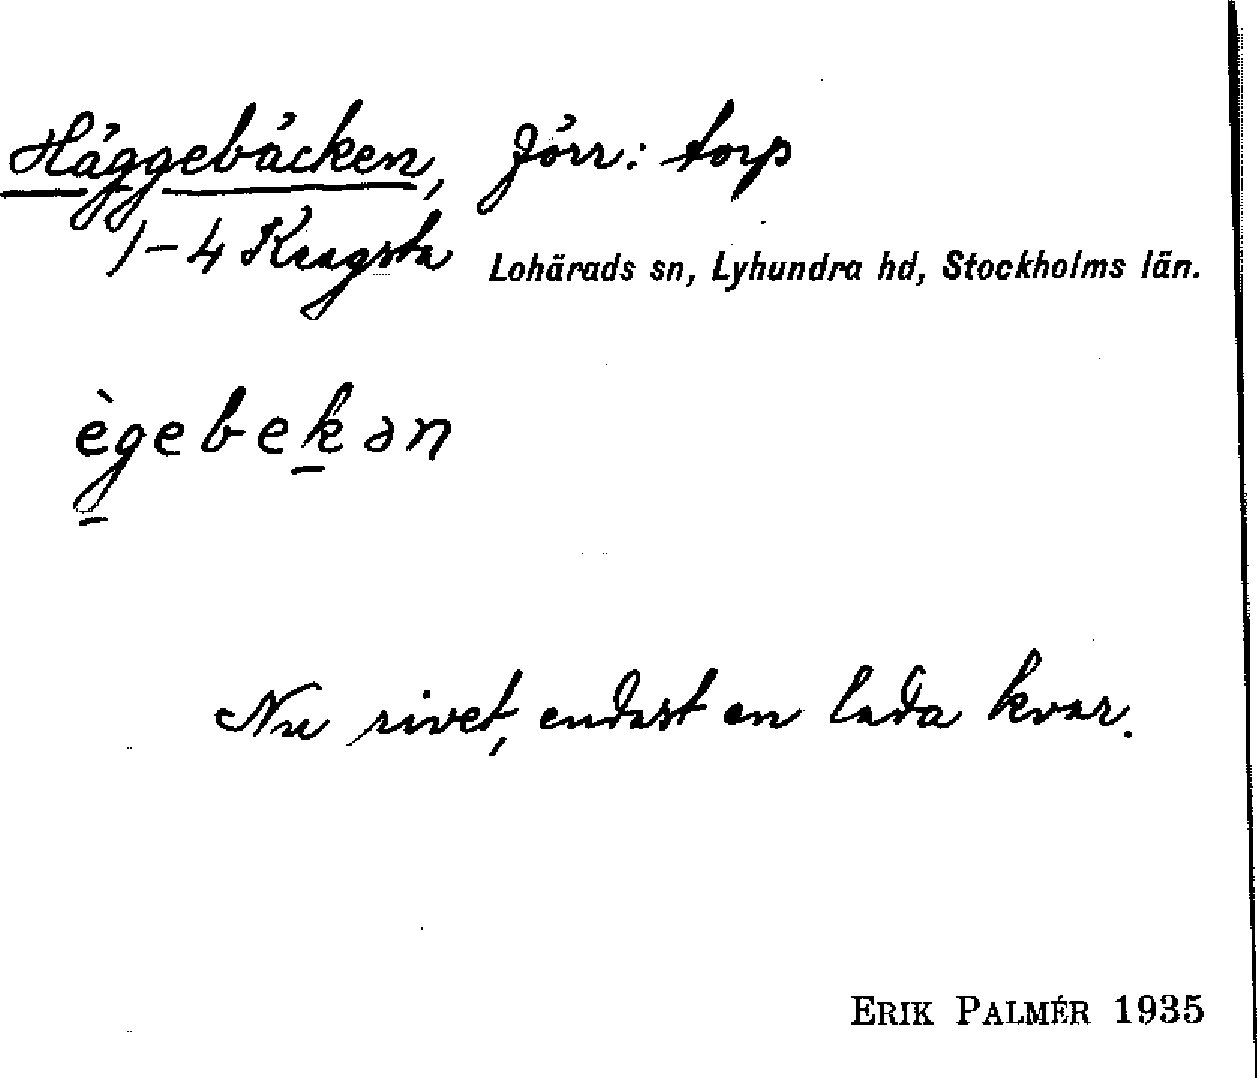 Häggebäcken, förr: torp
1-4 Kragsta Lohärads sn, Lyhundra hd, Stockholms län.
ègebekən
Nu rivet, endast en lada kvar.
ERIK PALMÉR 1935